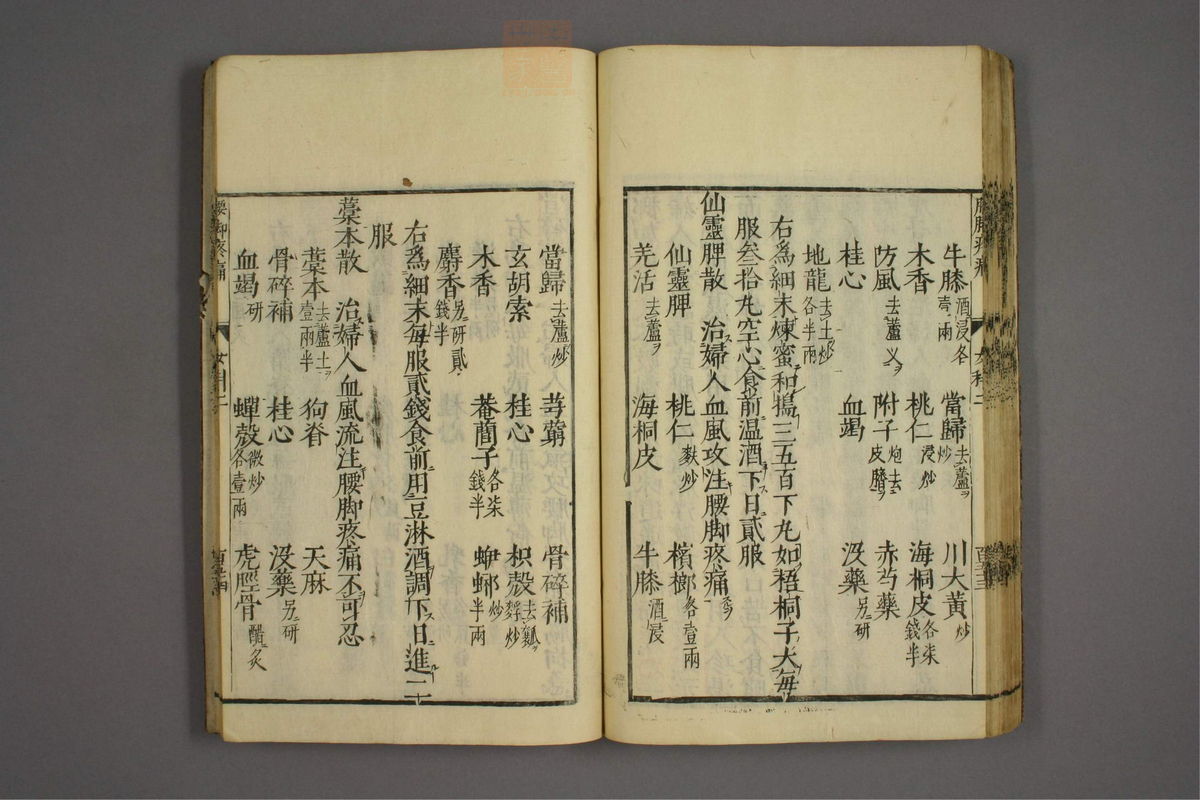 牛膝酒浸各壹兩 當歸去蘆炒 川大黃炒
木香 桃仁浸炒 海桐皮各柒錢半
防風去蘆叉 附子炮去皮臍 赤芍藥
桂心 血竭 沒藥另研
地龍去土炒各半兩
右爲細末煉蜜和搗三五百下丸如梧桐子大每
服叁拾丸空心食前温酒下日貳服
仙靈脾散 治婦人血風攻注腰脚疼痛
仙靈脾 桃仁麩炒 檳榔各壹兩
羌活去蘆 海桐皮 牛膝酒浸
當歸去蘆炒 芎藭 骨碎補
玄胡索 桂心 枳殼去瓤麩炒
木香 菴䕡子各柒錢半 虻蟲炒半兩
麝香另研貳錢半
右爲細末每服貳錢食前用豆淋酒調下日進二
服
藁本散 治婦人血風流注腰脚疼痛不可忍
藁本去蘆土壹兩半 狗脊 天麻
骨碎補 桂心 沒藥另研
血竭研 蟬殼微炒各壹兩 虎脛骨醋炙
腰脚疼痛